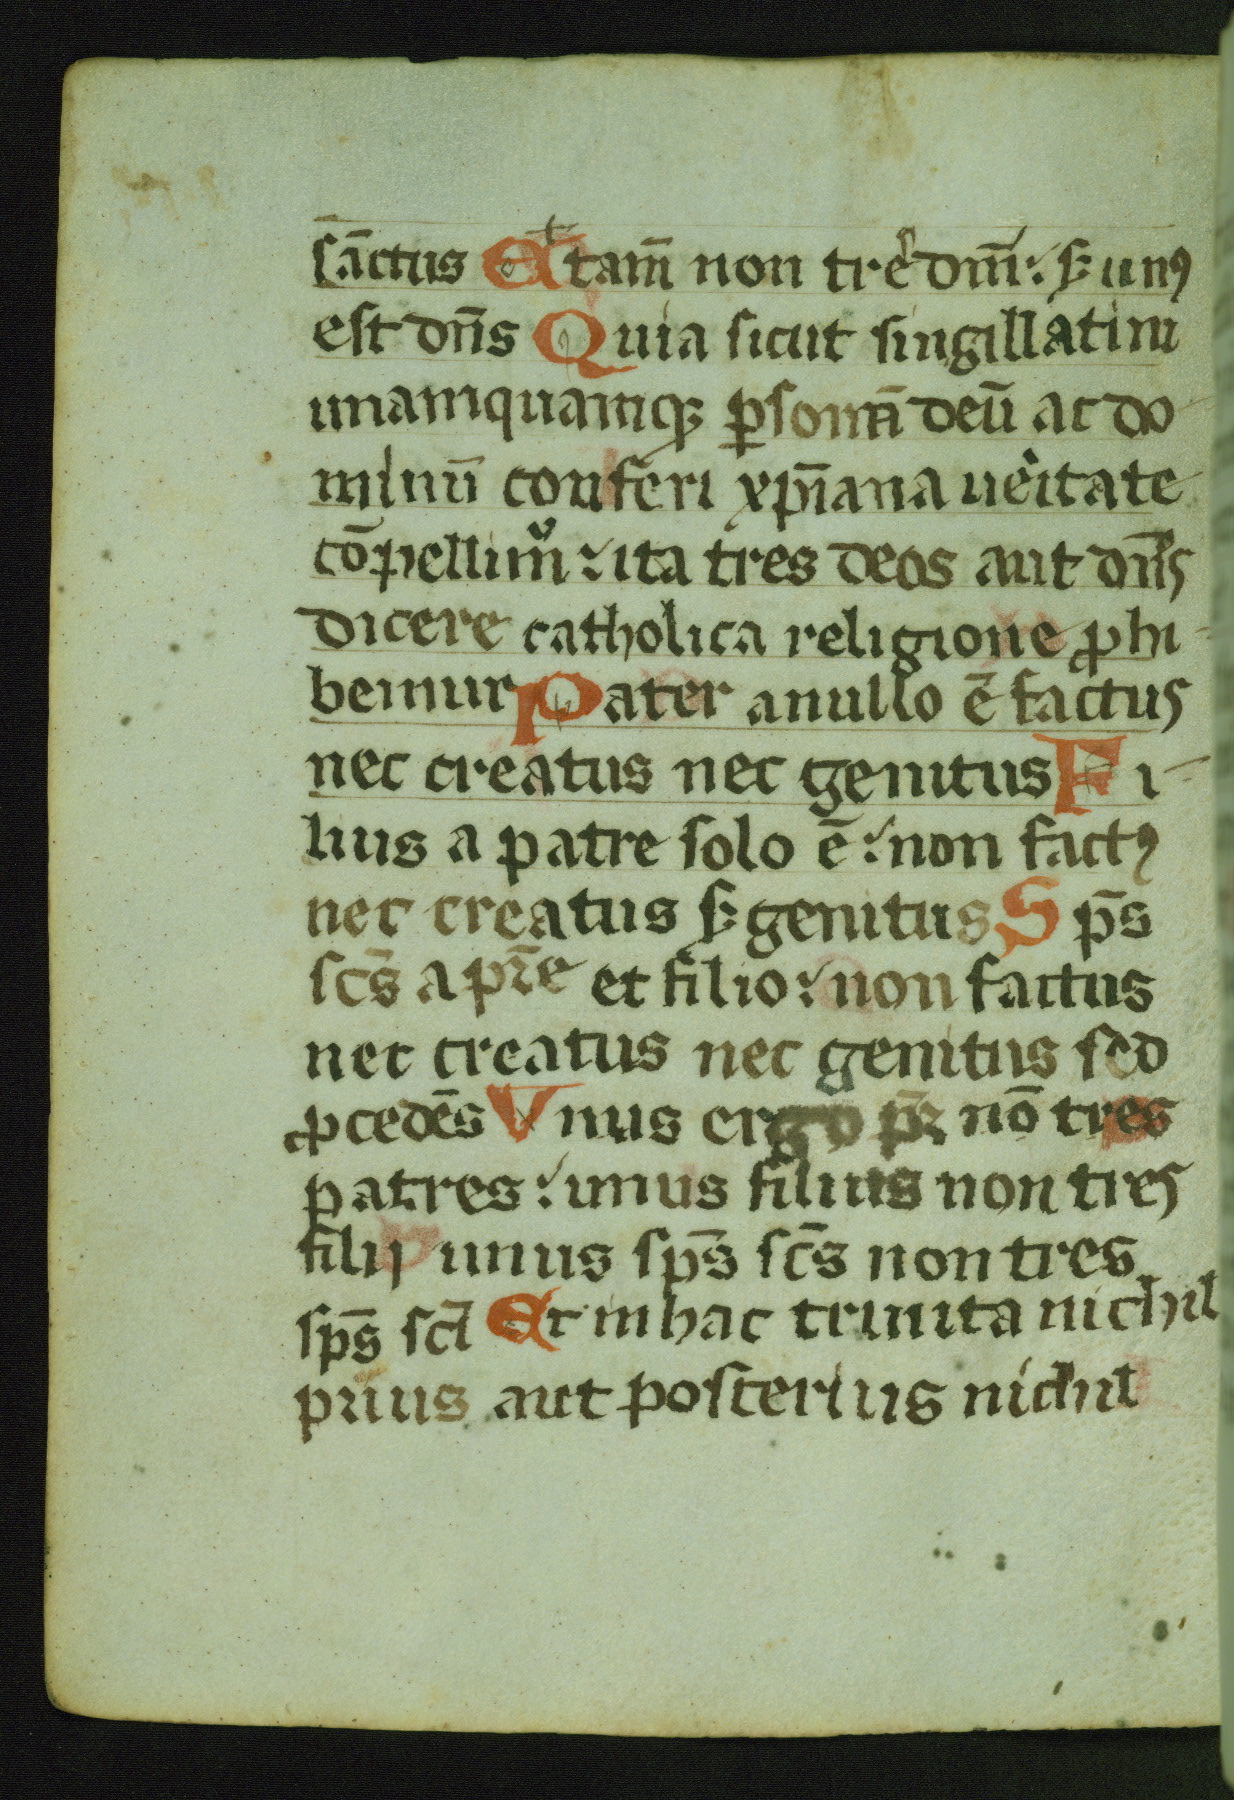 sāctus Et tam̄ non tres dm̄i: sꝫ unꝰ
est dn̄s Quia sicut singillatim
unamquamqꝫ ꝑsonā deū ac do
minū conferi xp̄iana ueritate
cōpellimur: ita tres deos aut dn̄os
dicere catholica religione ꝓhi
bemur Pater a nullo ē factus
nec creatus nec genitus Fi
lius a patre solo ē: non factꝰ
nec creatus sꝫ genitus Sp̄s
sc̄s a pr̄e et filio: non factus
nec creatus nec genitus sed
ꝓcedēs Vnus ergo pr̄ nō tres
patres: unus filius non tres
filij unus sp̄s sc̄s non tres
sp̄s sc̄i Et in hac trinita nichil
prius aut posterius nichil